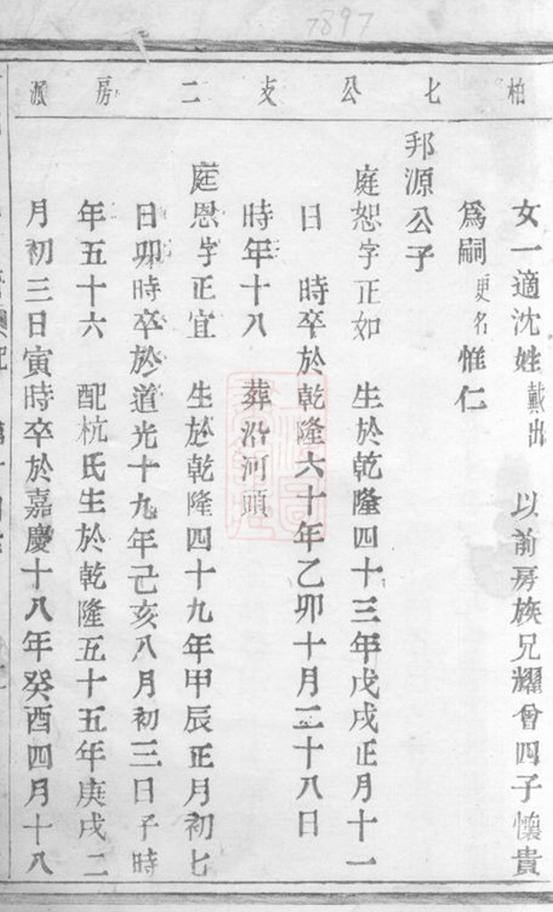 7897
柏七公支二房派
女一適沈姓戴出　以前房族兄耀曾四子懷貴
為嗣更名惟仁
邦源公子
庭恕字正如　生於乾隆四十三年戊戌正月十一
日　時卒於乾隆六十年乙卯十月二十八日
時年十八　葬沿河頭
庭恩字正宜　生於乾隆四十九年甲辰正月初七
日卯時卒於道光十九年己亥八月初三日子時
年五十六　配杭氏生於乾隆五十五年庚戌二
月初三日寅時卒於嘉慶十八年癸酉四月十八